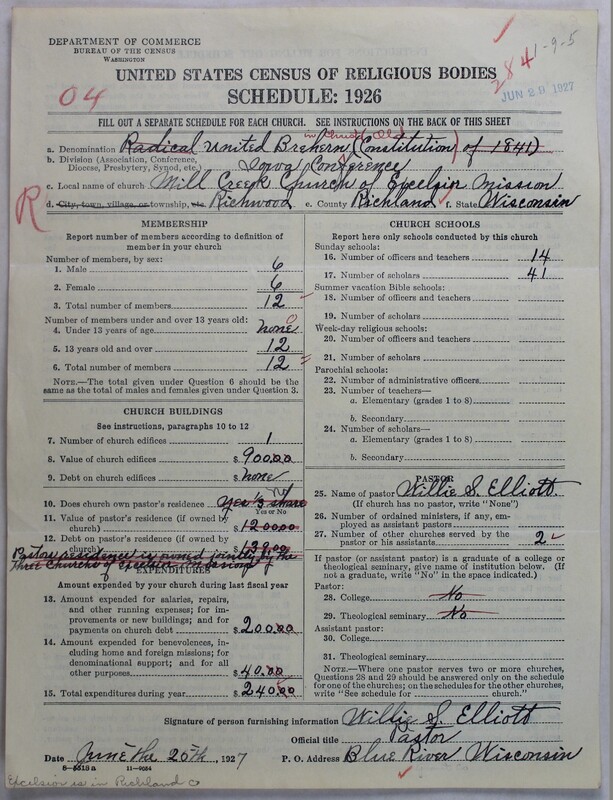 DEPARTMENT OF COMMERCE
BUREAU OF THE CENSUS
WASHINGTON
284 1-9-5
JUN 29 1927
04
UNITED STATES CENSUS OF RELIGIOUS BODIES
SCHEDULE: 1926
FILL OUT A SEPARATE SCHEDULE FOR EACH CHURCH. SEE INSTRUCTIONS ON THE BACK OF THIS SHEET
in Christ Old
a. Denomination Radical United Brehern (Constitution of 1841)
b. Division (Association, Conference, Diocese, Presbytery, Synod, etc.) Iowa Conference
c. Local name of church Mill Creek Church of Excelsior Mission
R
d. City, town, village, or township, etc. Richwood e. County Richland f. State Wisconsin
MEMBERSHIP
Report number of members according to definition of
member in your church
Number of members, by sex:
1. Male 6
2. Female 6
3. Total number of members 12
Number of members under and over 13 years old:
4. Under 13 years of age none 0
5. 13 years old and over 12
6. Total number of members 12
NOTE.—The total given under Question 6 should be
the same as total of males and females given under Question 3.
CHURCH BUILDINGS
See instructions, paragraphs 10 to 12
7. Number of church edifices 1
8. Value of church edifices $ 900.00
9. Debt on church edifices $ none
10. Does church own pastor's residence Yes 1/3 share No
Yes or No
11. Value of pastor's residence (if owned by
church) $ 1200.00
12. Debt on pastor's residence (if owned by
church) $
Pastors residence is owned jointly by the
three Churches of Excelsior Mission
EXPENDITURES
Amount expended by your church during last fiscal year
13. Amount expended for salaries, repairs,
and other running expenses; for im-
provements or new buildings; and for
payments on church debt $ 200.00
14. Amount expended for benevolences, in-
cluding home and foreign missions; for
denominational support; and for all
other purposes $ 40.00
15. Total expenditures during year $ 240.00
CHURCH SCHOOLS
Report here only schools conducted by this church
Sunday schools:
16. Number of officers and teachers 14
17. Number of scholars 41
Summer vacation Bible schools:
18. Number of officers and teachers
19. Number of scholars
Week-day religious schools:
20. Number of officers and teachers
21. Number of scholars
Parochial schools:
22. Number of administrative officers
23. Number of teachers—
a. Elementary (grades 1 to 8)
b. Secondary
24. Number of scholars—
a. Elementary (grades 1 to 8)
b. Secondary
PASTOR
25. Name of pastor Willie S. Elliott
(If church has no pastor, write "None")
26. Number of ordained ministers, if any, em-
ployed as assistant pastors
27. Number of other churches served by the
pastor or his assistants 2
If pastor (or assistant pastor) is a graduate of a college or
theological seminary, give name of institution below. (If
not a graduate, write "No" in the space indicated.)
Pastor:
28. College No
29. Theological seminary No
Assistant pastor:
30. College
31. Theological seminary
NOTE.—Where one pastor serves two or more churches,
Questions 28 and 29 should be answered only on the schedule
for one of the churches; on the schedules for the other churches,
write "See schedule for church."
Signature of person furnishing information Willie S. Elliott
Official title Pastor
Date June the 25th, 1927 P. O. Address Blue River Wisconsin
8—5518a 11—9084
Excelsior is in Richland Co